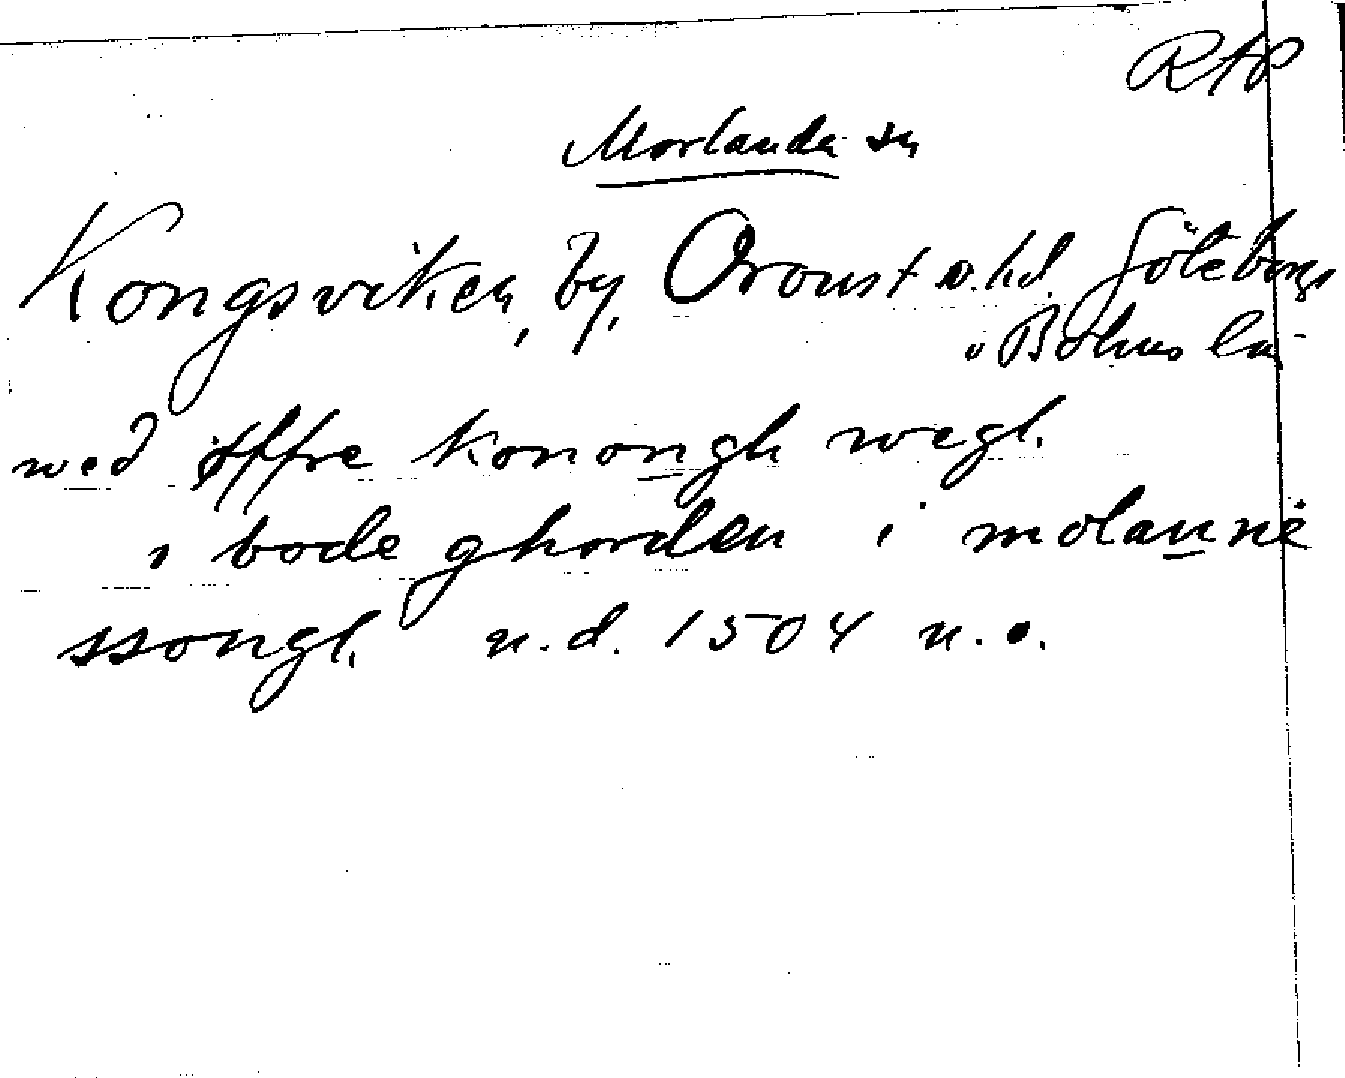 RAP
Morlanda sn
Kongsviken, by, Oroust v. hd. Göteborgs
o Bohus län
wed iffre konongh wegh.
i bode ghorden i molanne
ssongh. u.d. 1504 u.o.